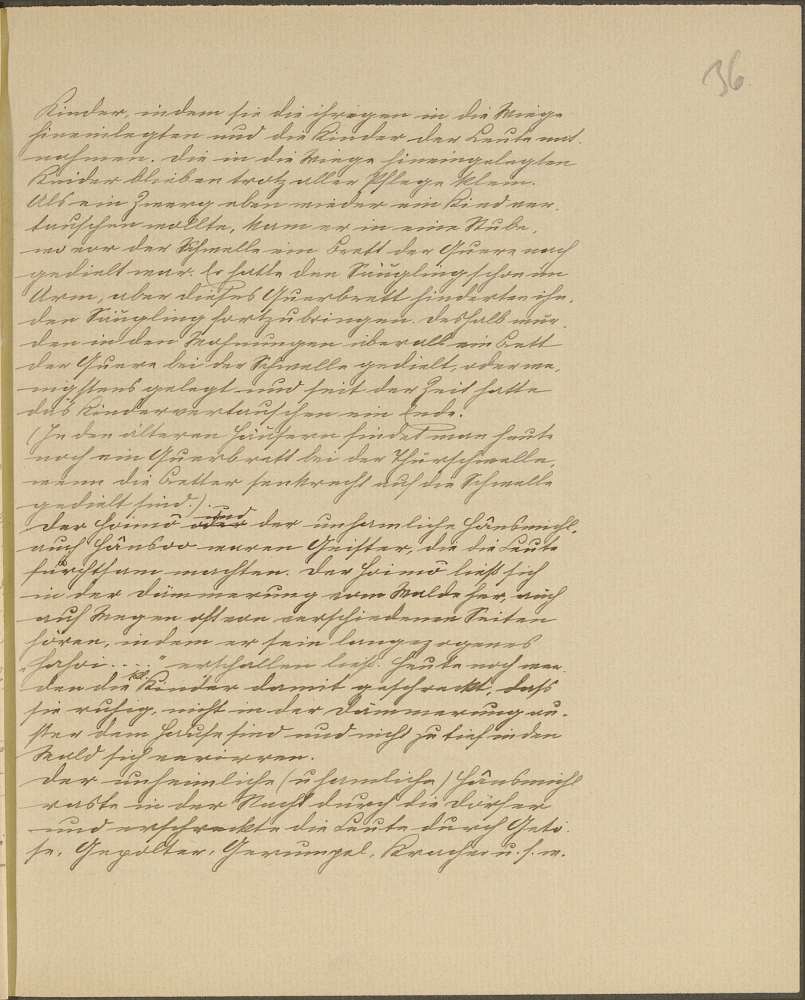 36
Kinder, indem sie die ihrigen in die Wiege
hineinlegten und die Kinder der Leute mit
nahmen. Die in die Wiege hineingelegten
Kinder blieben trotz aller Pflege klein.
Als ein Zwerg eben wieder ein Kind ver-
tauschen wollte, kam er in eine Stube,
wo vor der Schwelle ein Brett der Quere nach
gedielt war. Er hatte den Säugling schon im
Arm, aber dieses Querbrett hinderte ihn,
den Säugling fortzubringen. Deshalb wur-
den in den Wohnungen überall ein Brett
der Quere bei der Schwelle gedielt, oder we-
nigstens gelegt und seit der Zeit hatte
das Kindervertauschen ein Ende.
(In den älteren Häusern findet man heute
noch ein Querbrett bei der Thürschwelle,
wenn die Bretter senkrecht auf die Schwelle
gedielt sind.)
Der Hoimô und der unhamliche Hânsmichl,
auch Hânsoo waren Geister, die die Leute
furchtsam machten. Der Hoimô ließ sich
in der Dämmerung vom Walde her, auch
auf Wegen oft von verschiedenen Seiten
hören, indem er sein langezogenes
„Hahoi ...." erschallen ließ. Heute noch wer-
den die Kinder damit geschreckt, dass
sie ruhig, nicht in der Dämmerung au-
ßer dem Hause sind und nicht zu tief in den
Wald sich verirren.
Der unheimliche (uhamliche) Hânsmichl
raste in der Nacht durch die Dörfer
und erschreckte die Leute durch Getö-
se, Gepolter, Gerumpel, Krachen u. s. w.